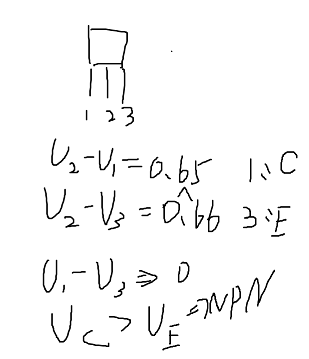 1 2 3
U₂-U₁=0.65 1:C
^
U₂-U₃=0.66 3:E
U₁-U₃⇒0
U_C>U_E⇒NPN